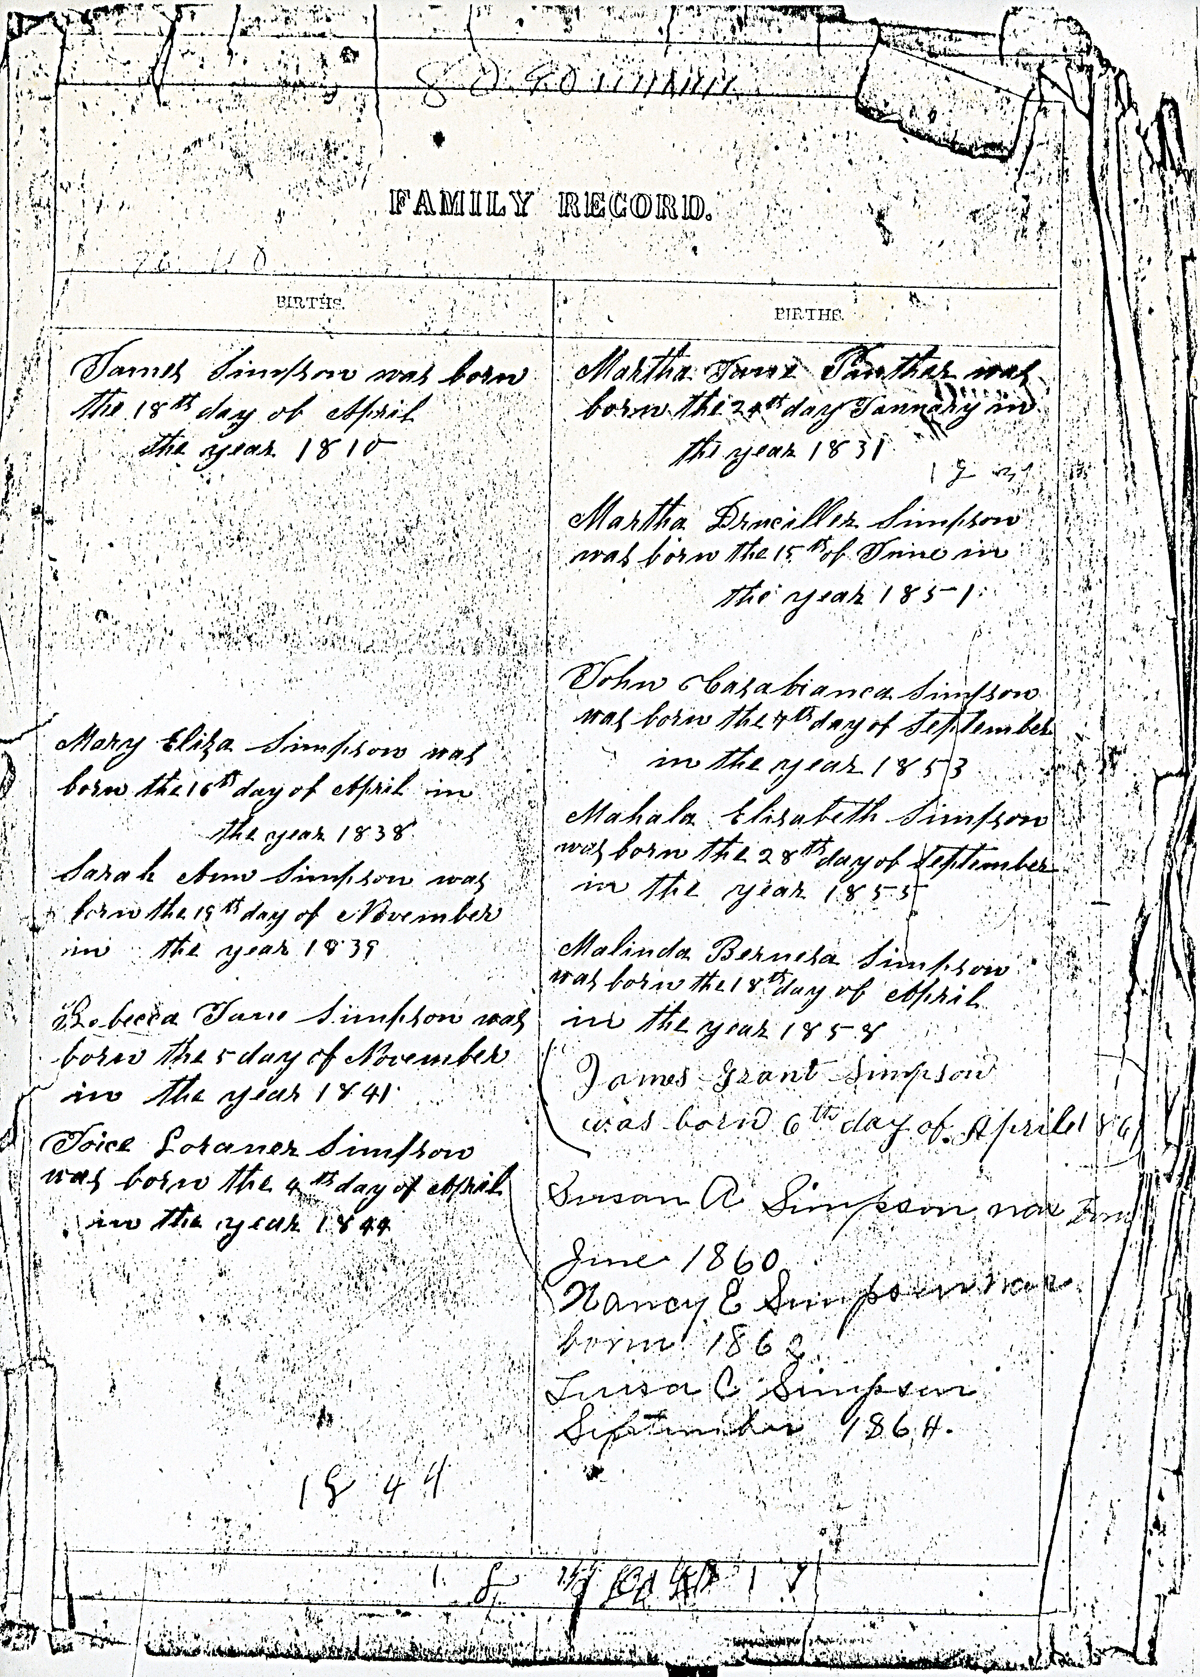 FAMILY RECORD.
BIRTHS.
James Simpson was born
the 18th day of April
the year 1810
Mary Eliza Simpson was
born the 16th day of April in
the year 1838
Sarah Ann Simpson was
born the 19th day of November
in the year 1839
Rebecca Jane Simpson was
born the 5 day of November
in the year 1841
Joice Loraner Simpson
was born the 4th day of April
in the year 1844
1844
BIRTHS.
Martha Jane Panther was
born the 24th day January in
the year 1831
Martha Druciller Simpson
was born the 15th of June in
the year 1851
John Casabianca Simpson
was born the 7th day of September
in the year 1853
Mahala Elisabeth Simpson
was born the 28th day of September
in the year 1855
Malinda Bernesa Simpson
was born the 18th day of April
in the year 1858
James Grant Simpson
was born 6th day of April 186
Susan A Simpson was born
June 1860
Nancy E Simpson was
born 1862
Luisa C Simpson
September 1864.